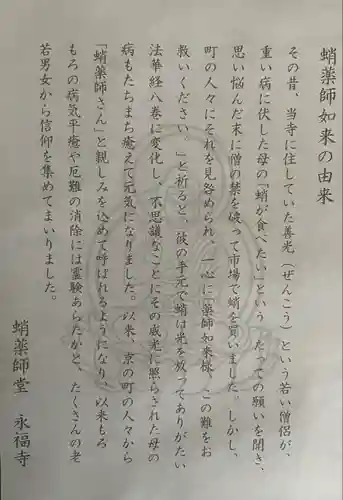 蛸薬師如来の由来
その昔、当寺に住していた善光(ぜんこう)という若い僧侶が、
重い病に伏した母の「蛸が食べたい」という、たっての願いを聞き、
思い悩んだ末に僧の禁を破って市場で蛸を買いました。しかし、
町の人々にそれを見咎められ、一心に「薬師如来様、この難をお
救いください。」と祈ると、彼の手元で蛸は光を放ってありがたい
法華経八巻に変化し、不思議なことにその威光に照らされた母の
病もたちまち癒えて元気になりました。以来、京の町の人々から
「蛸薬師さん」と親しみを込めて呼ばれるようになり、以来もろ
もろの病気平癒や厄難の消除には霊験あらたかと、たくさんの老
若男女から信仰を集めてまいりました。
蛸薬師堂 永福寺